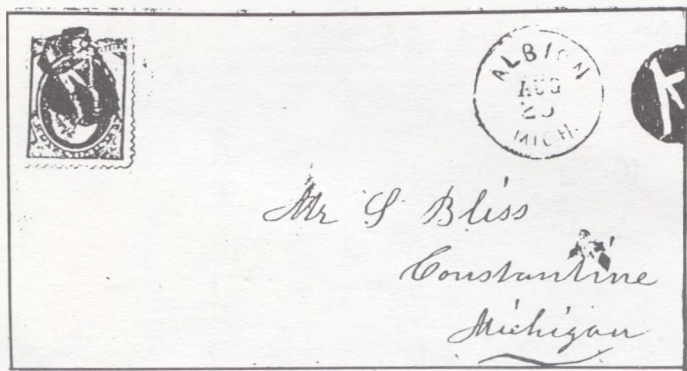 ALBION
AUG
MICH.
K
Mr S Bliss
Constantine
Michigan